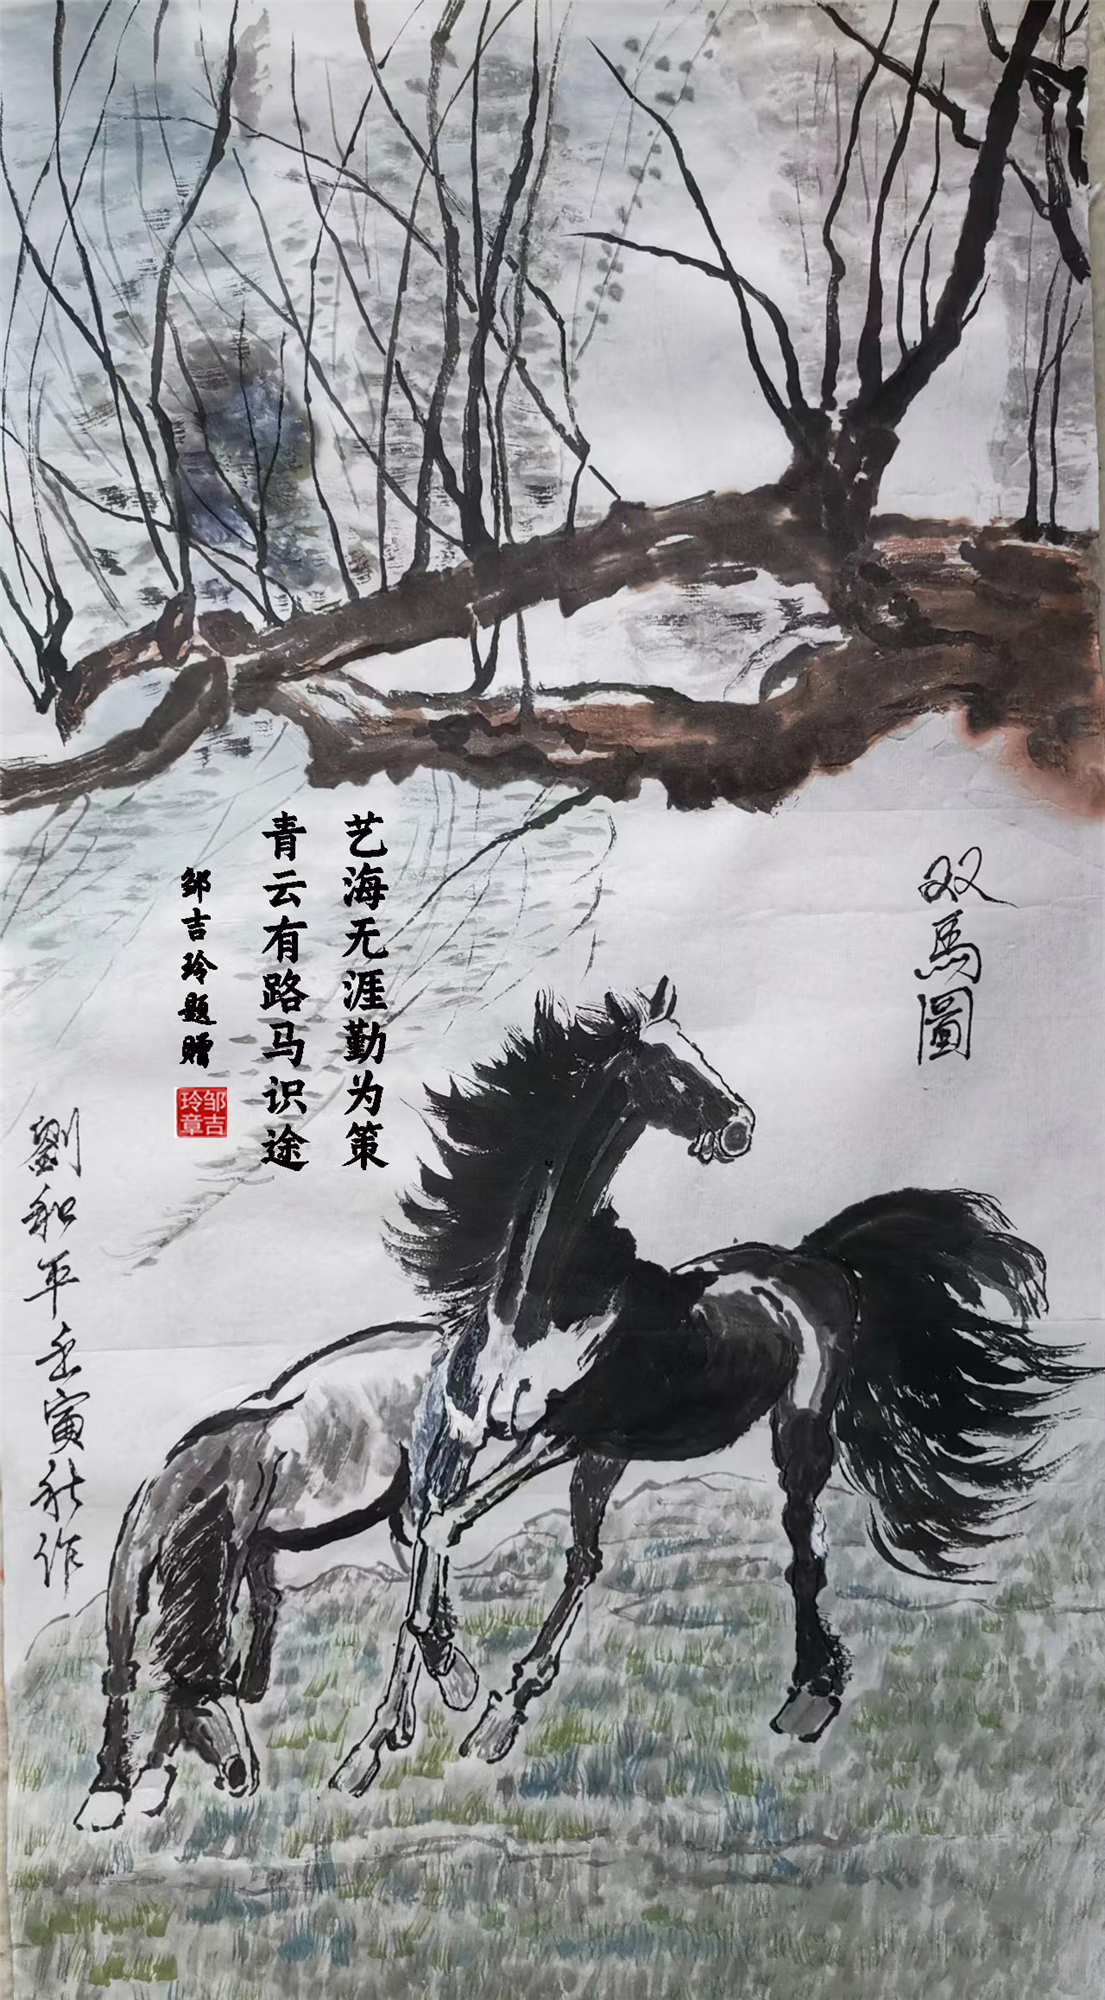 双馬圖
艺海无涯勤为策
青云有路马识途
邹吉玲题赠
邹吉
玲章
劉和平壬寅秋作